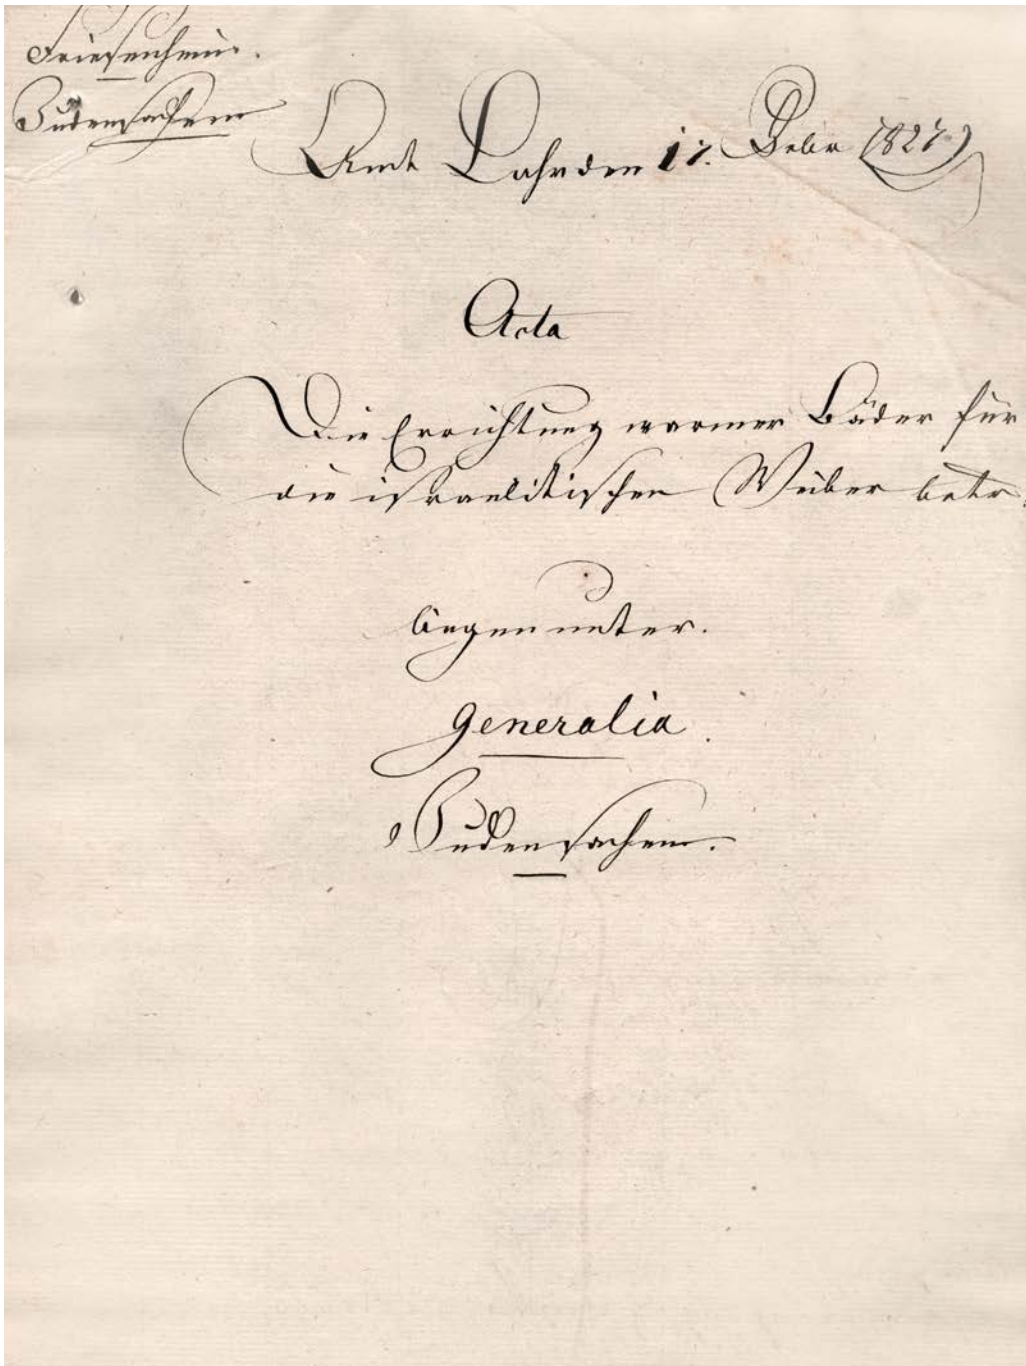 Friesenheim.
Judensachen
Amt Lahr den 17. Febr 1827
Acta
Die Errichtung warmer Bäder für
die israelitischen Weiber betr.
liegen unter.
Generalia.
Judensachen.